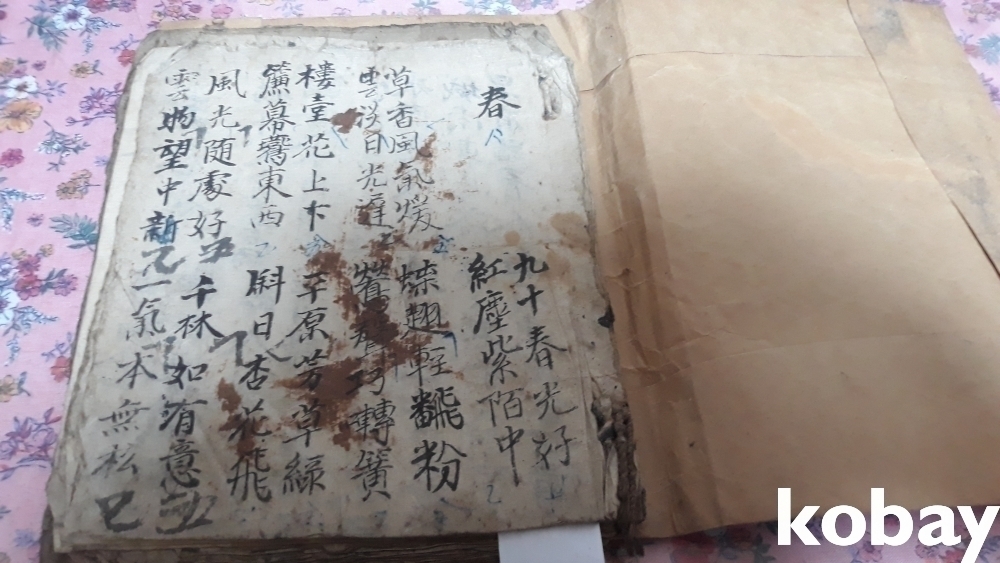 春
九十春光好
紅塵紫陌中
草香風氣煖
雲淡日光遲
蝶翅輕飜粉
鶯聲巧轉簧
樓臺花上下
簾幕鷰東西
平原芳草綠
斜日杏花飛
風光随處好
雲物望中新
千林如有意
一氣本無私
kobay